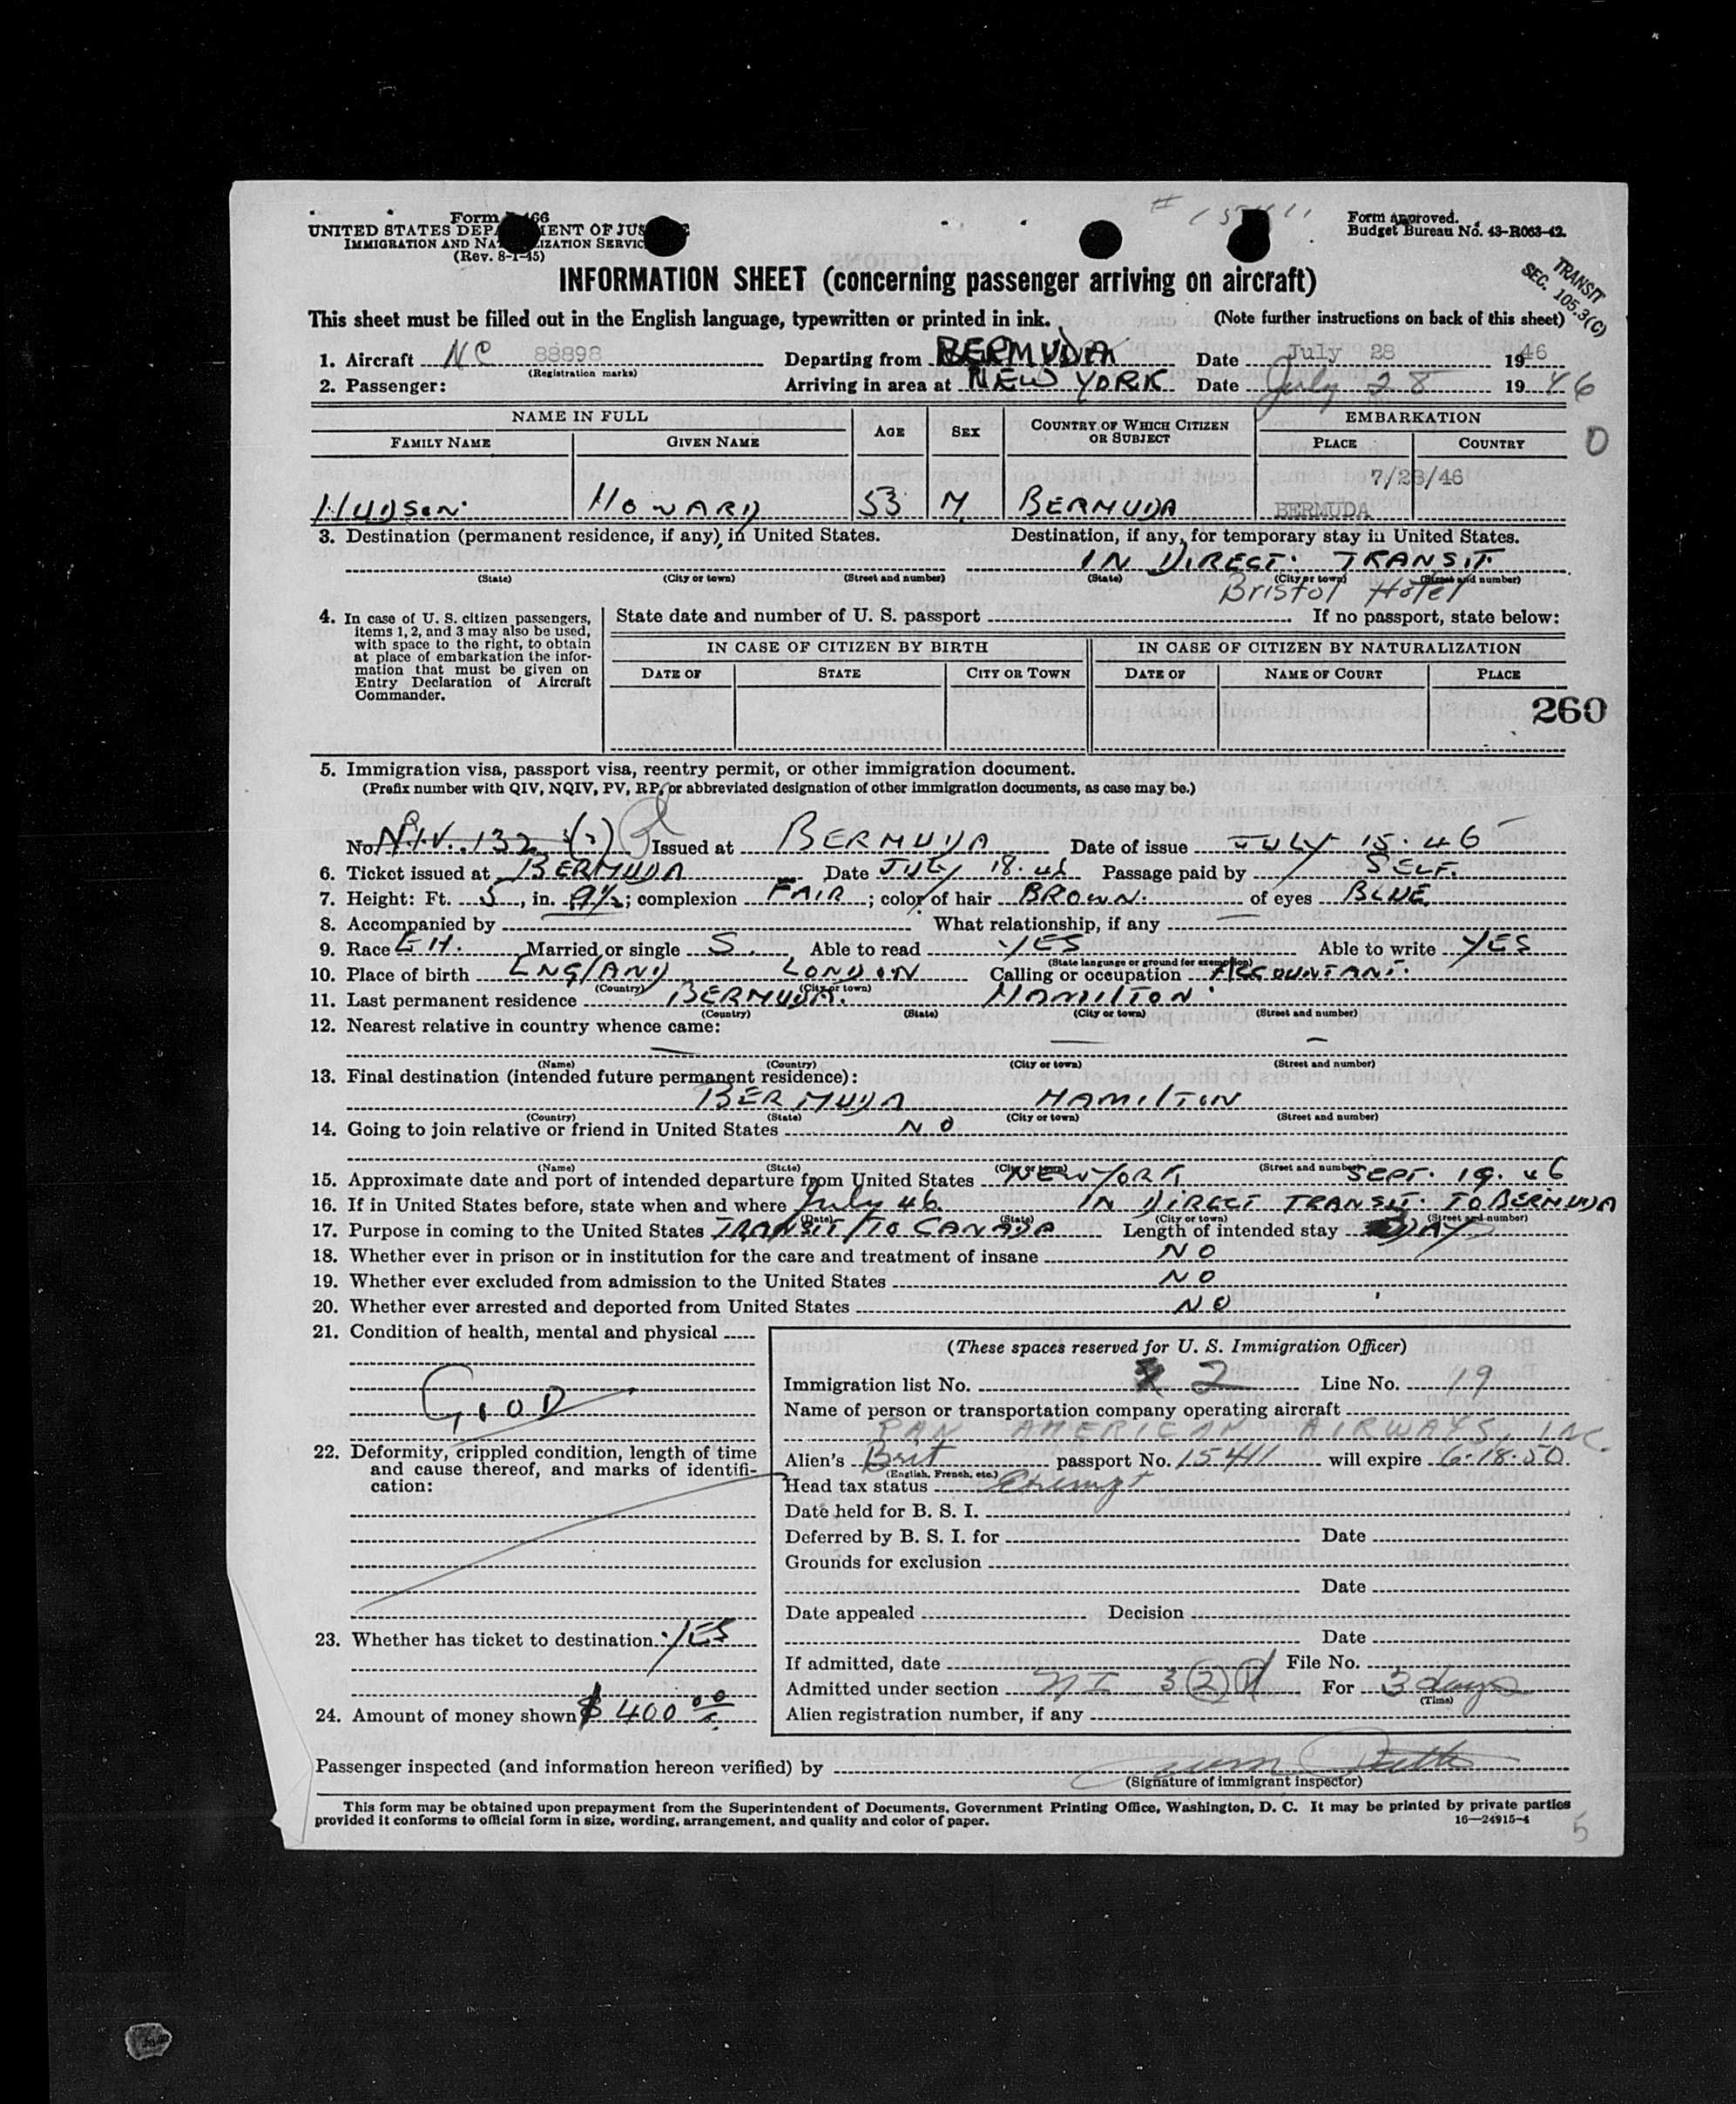 Form 466
UNITED STATES DEPA MENT OF JUS
IMMIGRATION AND NA IZATION SERVIC
(Rev. 8-1-45)
Form approved.
Budget Bureau No. 43-R063-42.
TRANSIT
SEC. 105.3(C)
INFORMATION SHEET (concerning passenger arriving on aircraft)
This sheet must be filled out in the English language, typewritten or printed in ink. (Note further instructions on back of this sheet)
1. Aircraft NC 88898 Departing from BERMUDA Date July 28 1946
(Registration marks)
2. Passenger: Arriving in area at NEW YORK Date July 28 1946
NAME IN FULL AGE SEX COUNTRY OF WHICH CITIZEN OR SUBJECT EMBARKATION
FAMILY NAME GIVEN NAME PLACE COUNTRY
0
7/28/46
HUDSON HOWARD 53 M BERMUDA BERMUDA
3. Destination (permanent residence, if any) in United States. Destination, if any, for temporary stay in United States.
IN DIRECT TRANSIT
(State) (City or town) (Street and number) (State) (City or town) (Street and number)
Bristol Hotel
4. In case of U. S. citizen passengers, items 1, 2, and 3 may also be used, with space to the right, to obtain at place of embarkation the information that must be given on Entry Declaration of Aircraft Commander.
State date and number of U. S. passport If no passport, state below:
IN CASE OF CITIZEN BY BIRTH IN CASE OF CITIZEN BY NATURALIZATION
DATE OF STATE CITY OR TOWN DATE OF NAME OF COURT PLACE
260
5. Immigration visa, passport visa, reentry permit, or other immigration document.
(Prefix number with QIV, NQIV, PV, RP, or abbreviated designation of other immigration documents, as case may be.)
No. N.I.V. 132 Issued at BERMUDA Date of issue JULY 15. 46
6. Ticket issued at BERMUDA Date JULY 18. 46 Passage paid by SELF.
7. Height: Ft. 5, in. 9½; complexion FAIR; color of hair BROWN. of eyes BLUE
8. Accompanied by What relationship, if any
9. Race EH. Married or single S. Able to read YES Able to write YES
(State language or ground for exemption)
10. Place of birth ENGLAND LONDON Calling or occupation ACCOUNTANT.
(Country) (City or town)
11. Last permanent residence BERMUDA. HAMILTON
(Country) (State) (City or town) (Street and number)
12. Nearest relative in country whence came:
(Name) (Country) (City or town) (Street and number)
13. Final destination (intended future permanent residence):
BERMUDA HAMILTON
(Country) (State) (City or town) (Street and number)
14. Going to join relative or friend in United States NO
(Name) (State) (City or town) (Street and number)
15. Approximate date and port of intended departure from United States NEW YORK SEPT. 19. 46
16. If in United States before, state when and where July 46. IN DIRECT TRANSIT. TO BERMUDA
(Date) (State) (City or town) (Street and number)
17. Purpose in coming to the United States TRANSIT/TO CANADA Length of intended stay DAY
18. Whether ever in prison or in institution for the care and treatment of insane NO
19. Whether ever excluded from admission to the United States NO
20. Whether ever arrested and deported from United States NO
21. Condition of health, mental and physical
GOOD
22. Deformity, crippled condition, length of time and cause thereof, and marks of identification:
23. Whether has ticket to destination YES
24. Amount of money shown $ 400 00
(These spaces reserved for U. S. Immigration Officer)
Immigration list No. 2 Line No. 19
Name of person or transportation company operating aircraft
PAN AMERICAN AIRWAYS, INC.
Alien's Brit passport No. 15411 will expire 6-18-50
(English, French, etc.)
Head tax status Exempt
Date held for B. S. I.
Deferred by B. S. I. for Date
Grounds for exclusion
Date
Date appealed Decision
Date
If admitted, date File No.
Admitted under section NI 3 (2) For 3 days
(Time)
Alien registration number, if any
Passenger inspected (and information hereon verified) by
(Signature of immigrant inspector)
This form may be obtained upon prepayment from the Superintendent of Documents, Government Printing Office, Washington, D. C. It may be printed by private parties
provided it conforms to official form in size, wording, arrangement, and quality and color of paper. 16—24915-4
5